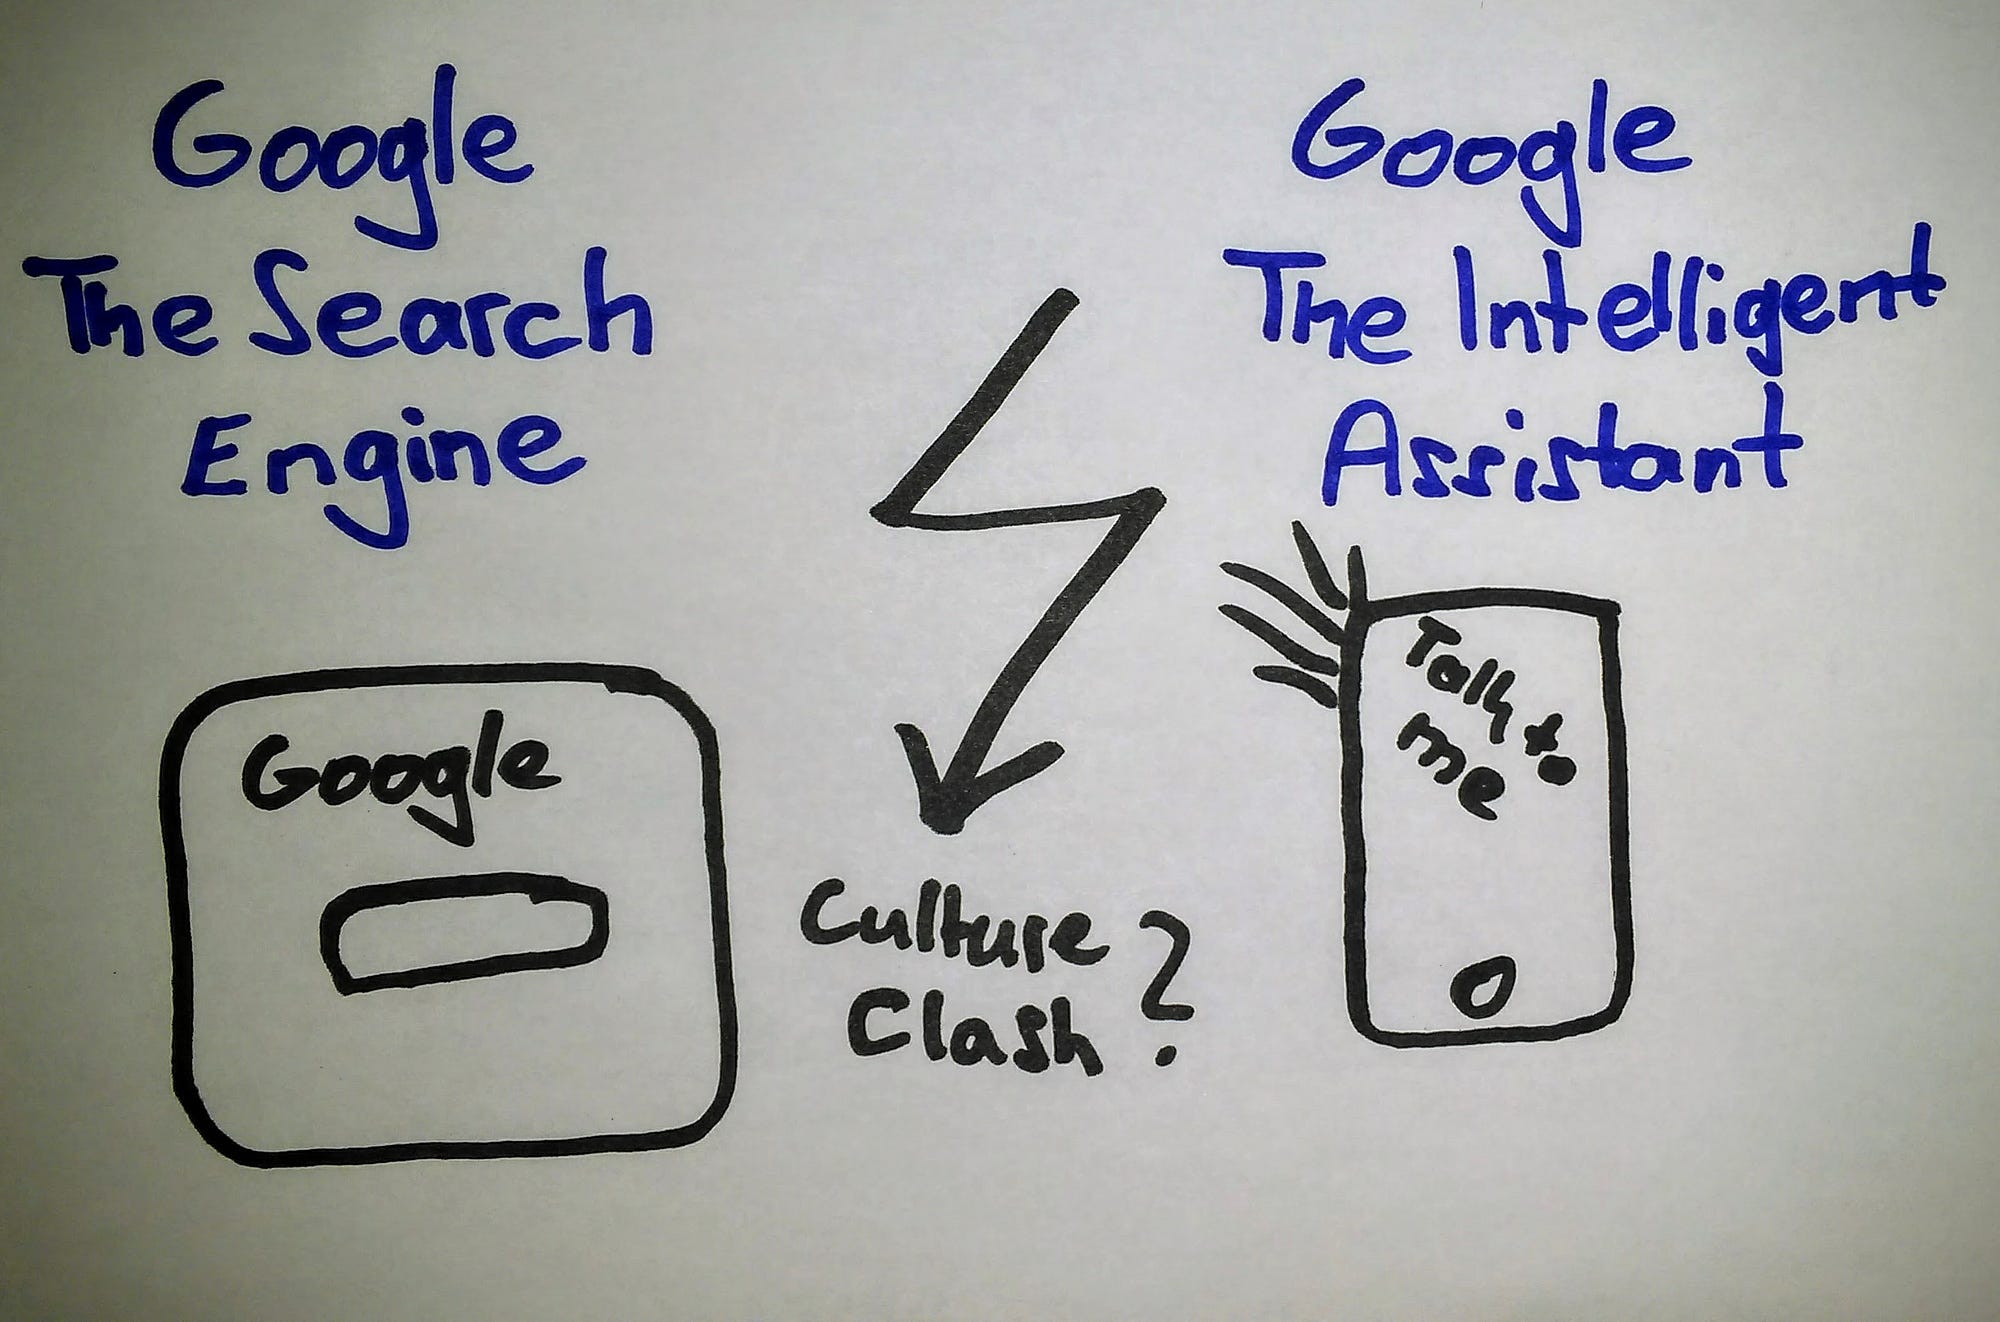 Google
The Search
Engine
Google
The Intelligent
Assistant
Google
Culture
Clash?
Talk to
me